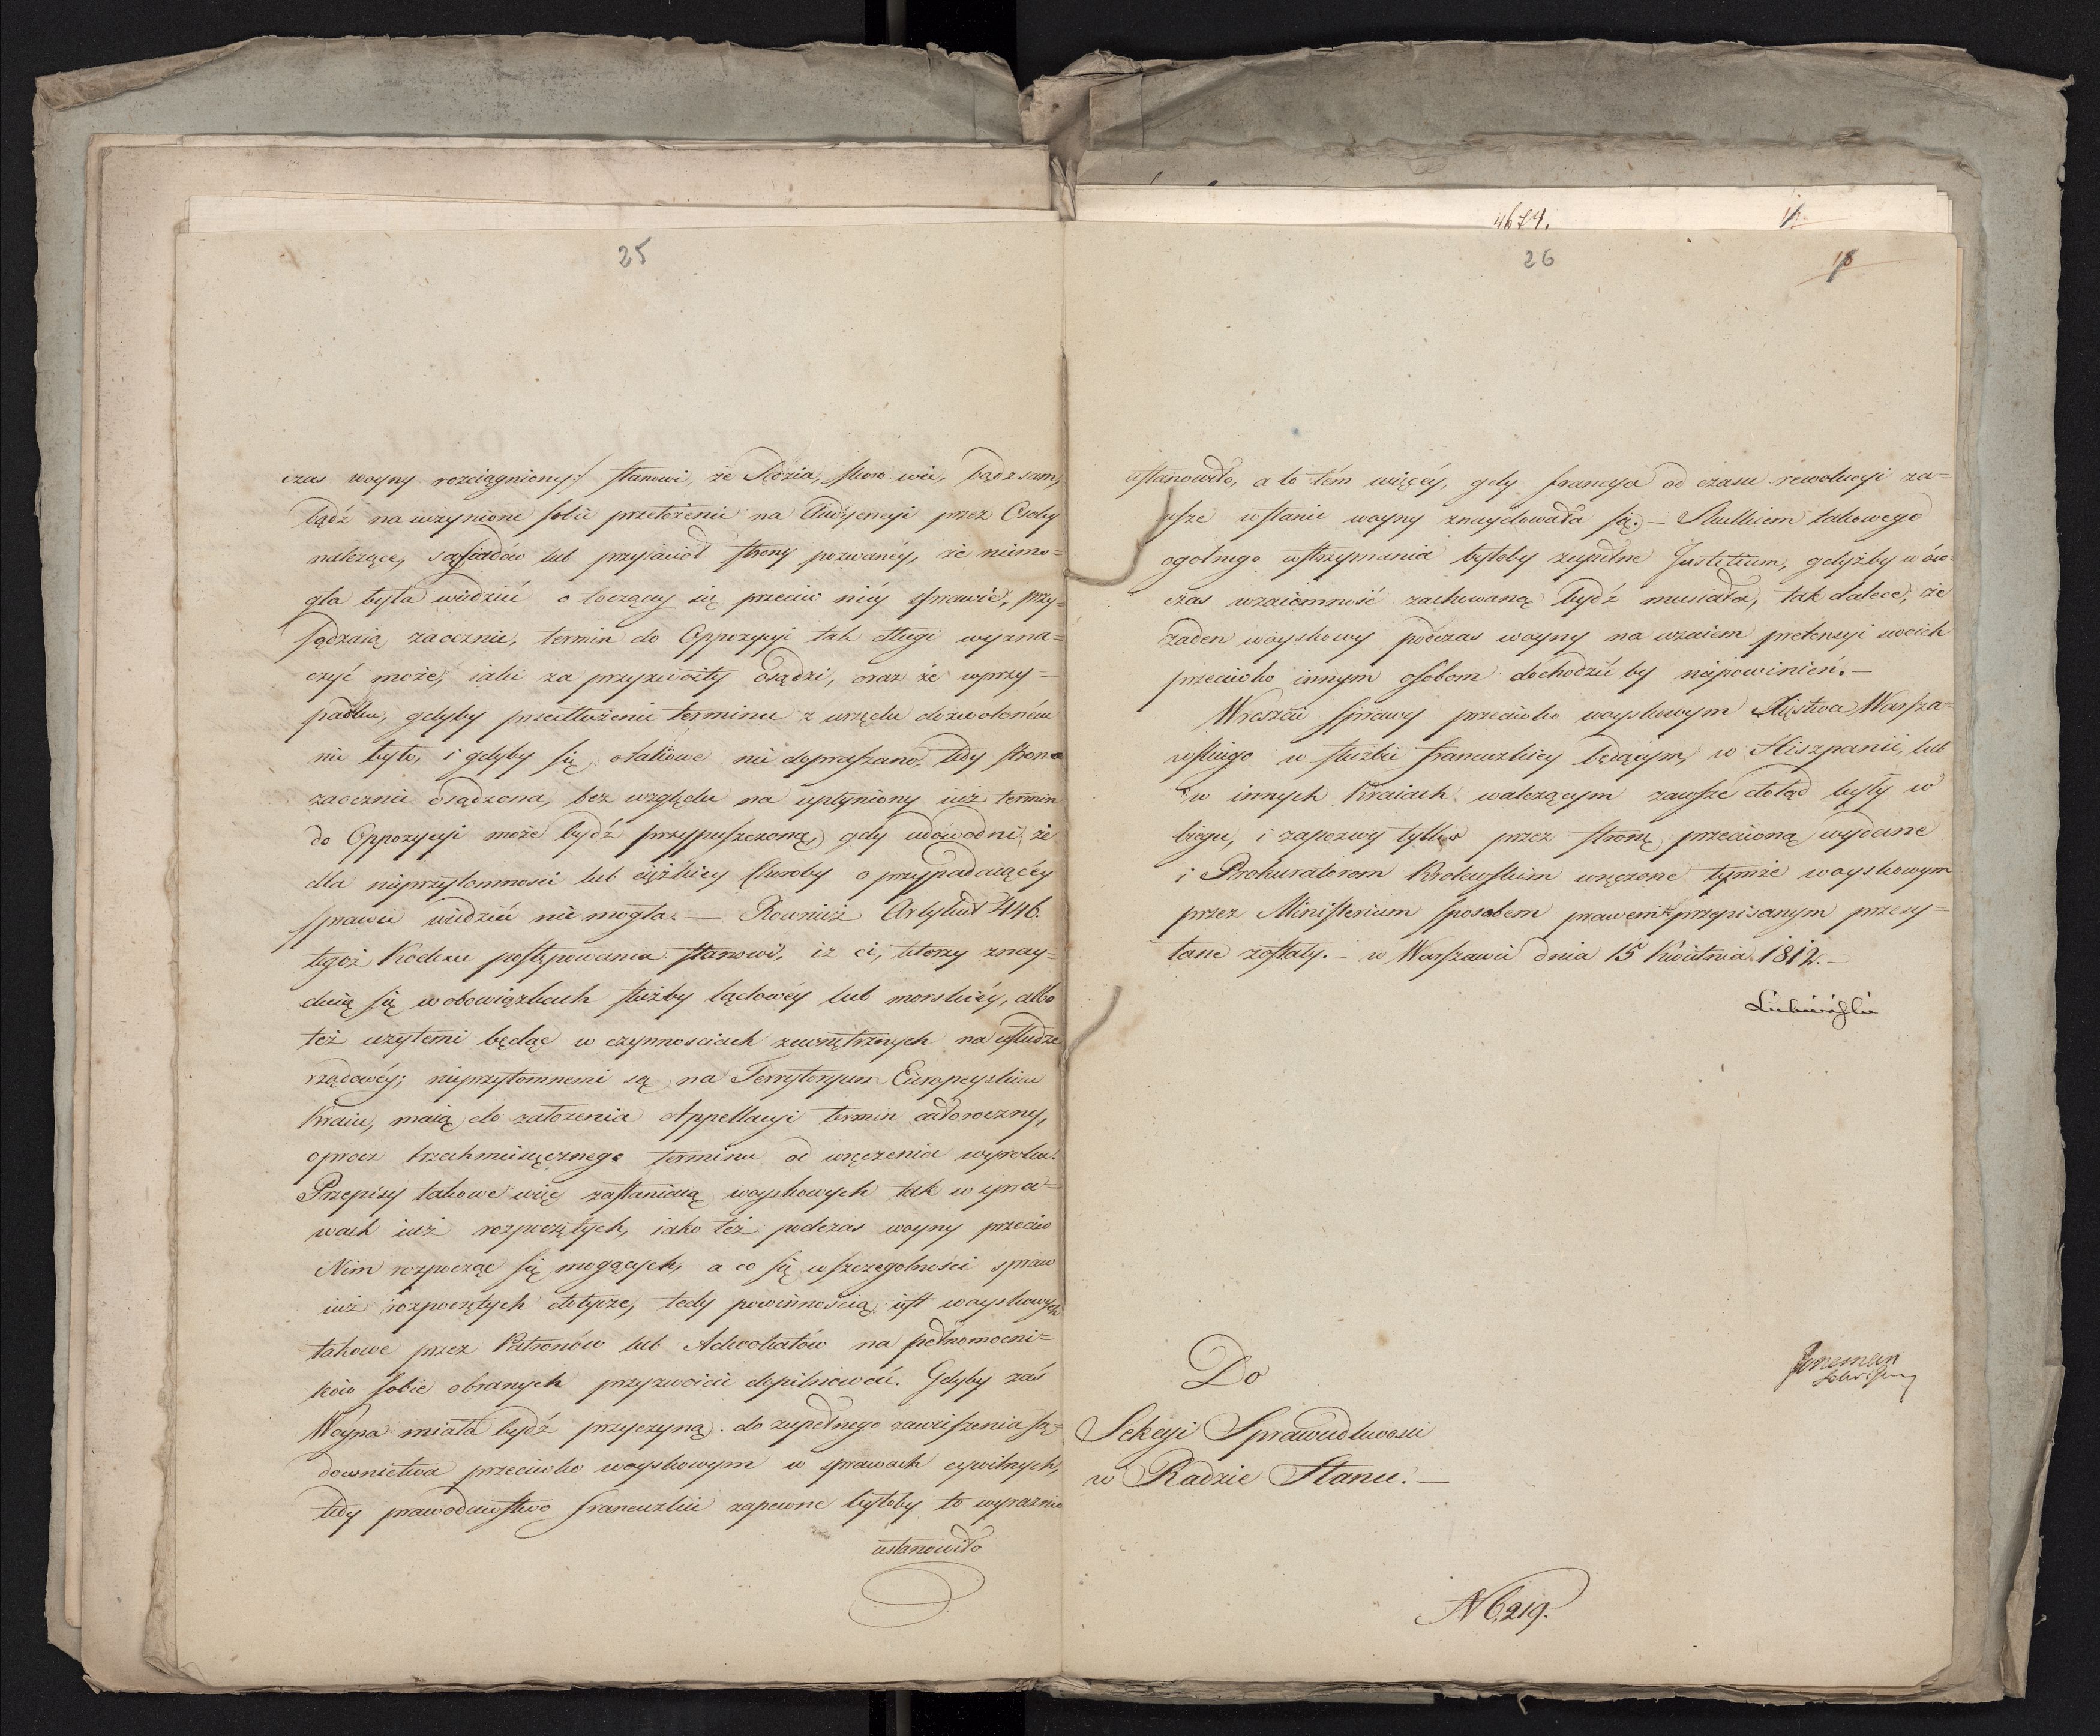 25
czas woyny rozciągniony:/ stanowi, że Sędzia, skoro wie, bądz sam,
bądź na uczynione sobie przełożenie na Audyencyi przez Osoby
należące, sąsiadów lub przyjaciół strony pozwanéy, że niemo=
gła była wiedzieć o toczącey się przeciw niéy sprawie, przy=
sądzaią zaocznie, termin do Oppozycyi tak długi wyzna=
czyć może, iaki za przyzwoity osądzi, oraz że w przy=
padku, gdyby przedłużenie terminu z urzędu dozwoloném
nie było, i gdyby się o takowe nie dopraszano, tedy strona
zaocznie osądzona, bez względu na upłyniony iuż termin
do Oppozycyi może bydź przypuszczoną, gdy udowodni, że
dla nieprzytomności lub ciężkiey Choroby o przypadaiącéy
sprawie wiedzieć nie mogła. — Rownież Artykuł 446.
tegoż Kodexu postępowania stanowi, iż ci, ktorzy znay=
duią się w obowiązkach służby lądowéy lub morskiéy, albo
też użytemi będąc w czynnościach zewnętrznych na usłudze
rządowéy; nieprzytomnemi są na Terrytoryum Europeyskim
Kraiu, maią do założenia Appellacyi termin całoroczny,
oprocz trzechmiesięcznego terminu od wręczenia wyroku.
Przepisy takowe więc zasłaniaią woyskowych tak w spra=
wach iuż rozpoczętych, iako też podczas woyny przeciw
Nim rozpocząć się mogących, a co się w szczegolności spraw
iuż rozpoczętych dotycze, tedy powinnością iest woyskowych
takowe przez Patronów lub Adwokatów na pełnomocni=
ków sobie obranych przyzwoicie dopilnować. Gdyby zaś
Woyna miała bydź przyczyną do zupełnego zawieszenia są=
downictwa przeciwko woyskowym w sprawach cywilnych,
tedy prawodawstwo francuzkie zapewne byłoby to wyraźnie
ustanowiło
4674.
26
18
ustanowiło, a to tém więcéy, gdy francya od czasu rewolucyi za=
wsze w stanie woyny znaydowała się. — Skutkiem takowego
ogolnego wstrzymania byłoby zupełne Justitium, gdyżby w ów=
czas wzaiemność zachowaną bydź musiała, tak dalece, że
żaden woyskowy podczas woyny na wzaiem pretensyi swoich
przeciwko innym osobom dochodzić by niepowinień. —
Wreszcie sprawy przeciwko woyskowym Xięstwa Warsza=
wskiego w służbie francuzkiey będącym, w Hiszpanii, lub
w innych Kraiach walczącym zawsze dotąd były w
biegu, i zapozwy tylko przez stronę przeciwną wydane
i Prokuratorom Krolewskim wręczone tymże woyskowym
przez Ministerium sposobem prawem przepisanym przesy=
łane zostały. — w Warszawie dnia 15 Kwietnia 1812. —
Łubieński
Do
Sekcyi Sprawiedliwości
w Radzie Stanu. —
N 6,219.